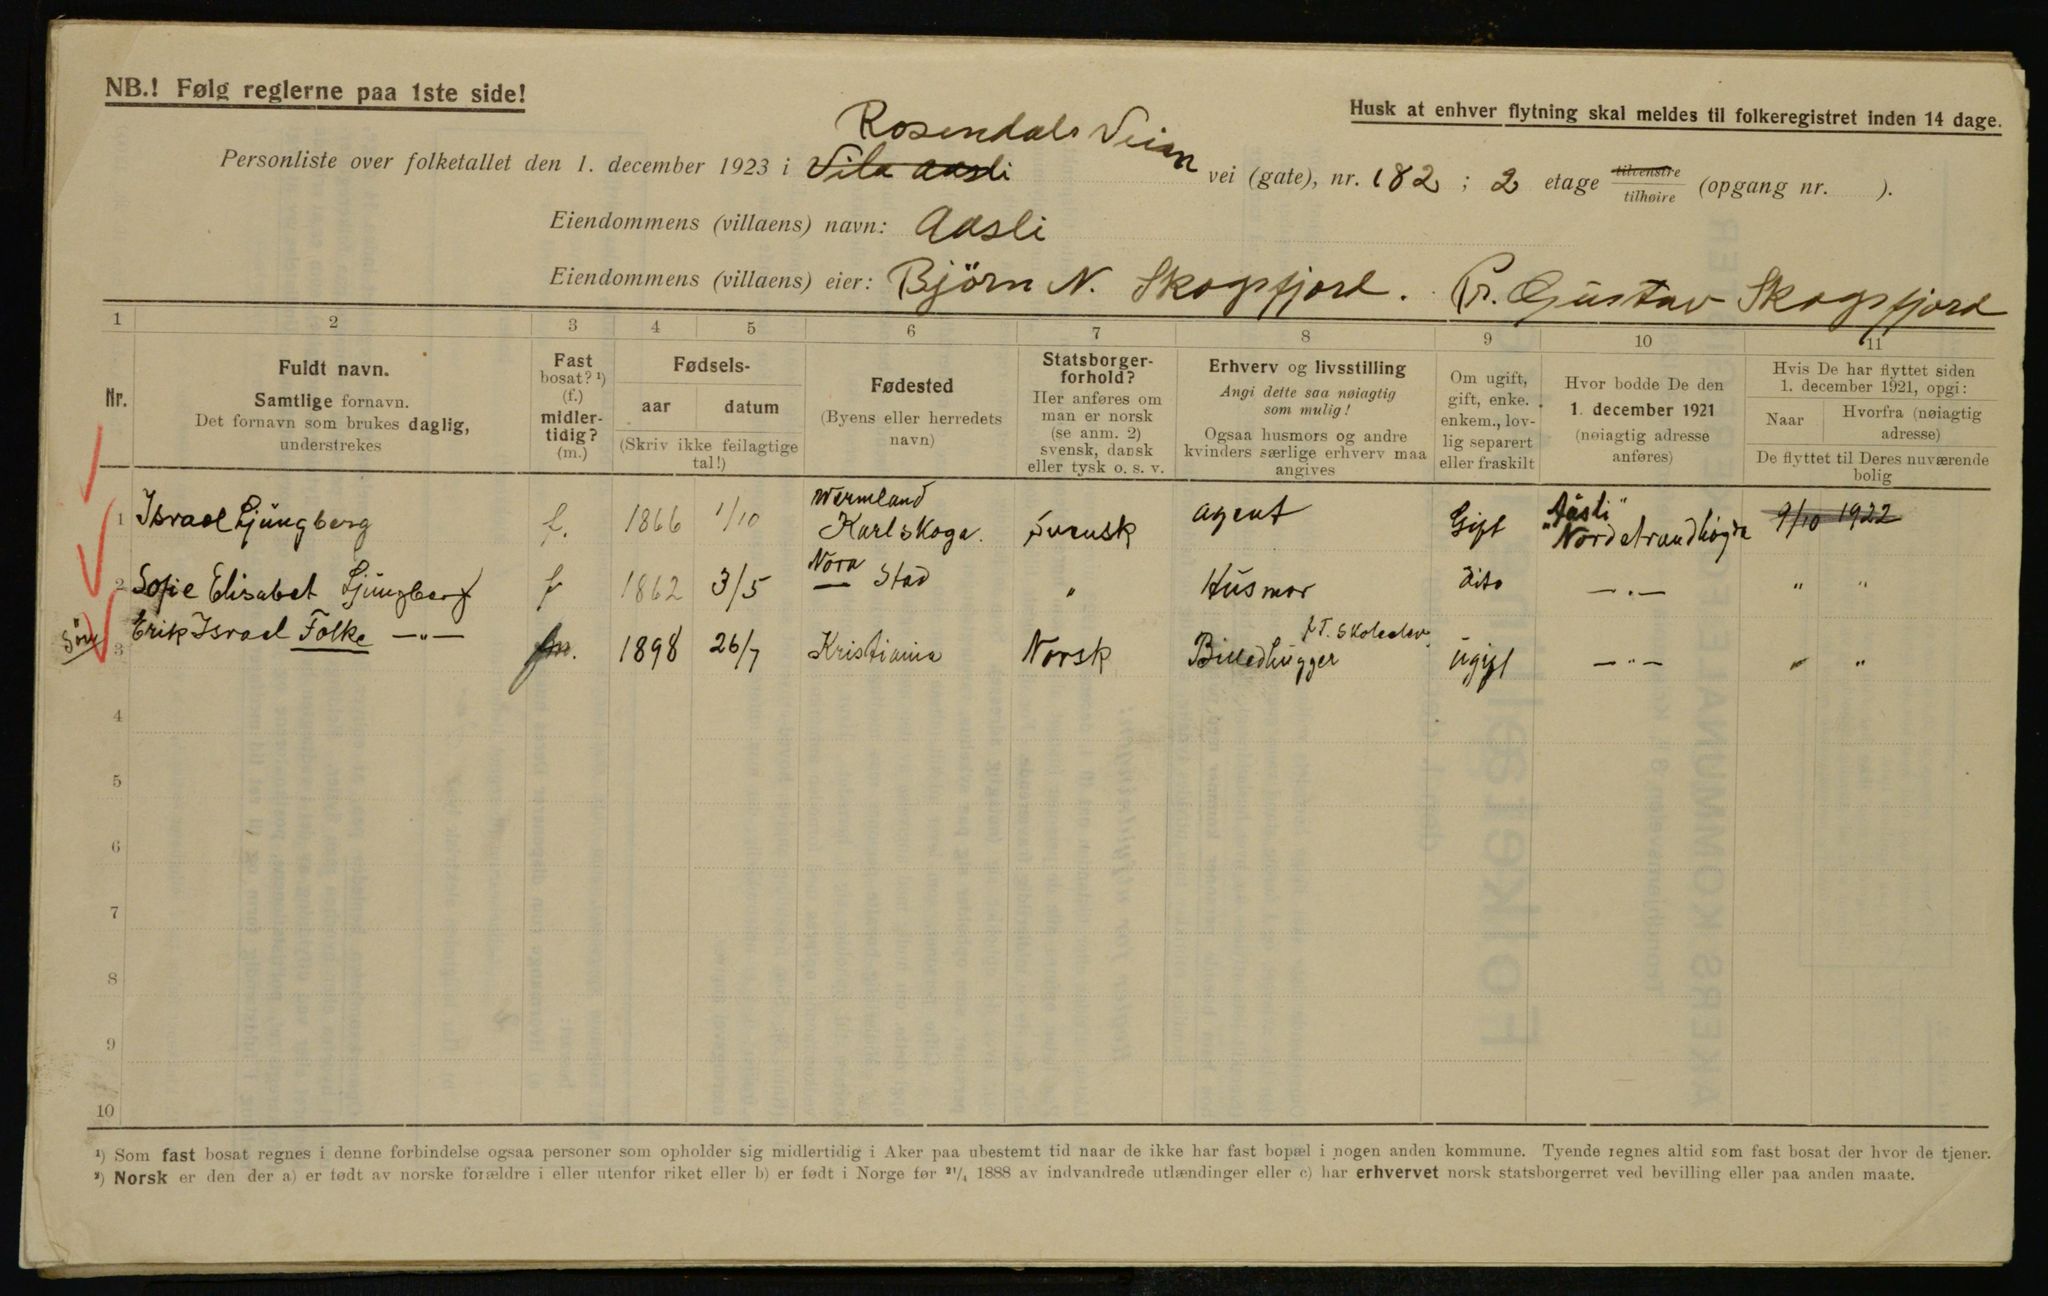 NB.! Følg reglerne paa 1ste side!
Husk at enhver flytning skal meldes til folkeregistret inden 14 dage.
Rosendals Veien
Personliste over folketallet den 1. december 1923 i Vila Aasli vei (gate), nr. 182 ; 2 etage tilvenstre tilhøire (opgang nr. ).
Eiendommens (villaens) navn: Aasli
Eiendommens (villaens) eier: Björn N. Skogsfjord. Pr. Gustav Skogsfjord
1 2 3 4 5 6 7 8 9 10 11
Nr.
Fuldt navn.
Samtlige fornavn.
Det fornavn som brukes daglig,
understrekes
Fast
bosat? ¹)
(f.)
midler-
tidig?
(m.)
Fødsels-
aar datum
(Skriv ikke feilagtige
tal!)
Fødested
(Byens eller herredets
navn)
Statsborger-
forhold?
Her anføres om
man er norsk
(se anm. 2)
svensk, dansk
eller tysk o. s. v.
Erhverv og livsstilling
Angi dette saa nøiagtig
som mulig!
Ogsaa husmors og andre
kvinders særlige erhverv maa
angives
Om ugift,
gift, enke.
enkem., lov-
lig separert
eller fraskilt
Hvor bodde De den
1. december 1921
(nøiagtig adresse
anføres)
Hvis De har flyttet siden
1. december 1921, opgi:
Naar Hvorfra (nøiagtig
adresse)
De flyttet til Deres nuværende
bolig
1 Israel Ljüngberg f. 1866 1/10 Wermland Karlskoga. Svensk agent Gift "Aasli" Nordstrandhøgda 9/10 1922
2 Sofie Elisabet Ljüngberg f 1862 3/5 Nora — Stad " Hüsmor dito —"— " "
Sön 3 Erik Israel Folke —"— fm. 1898 26/7 Kristiania Norsk Billedhügger f.T. Skoleelev ügift —"— " "
4
5
6
7
8
9
10
¹) Som fast bosat regnes i denne forbindelse ogsaa personer som opholder sig midlertidig i Aker paa ubestemt tid naar de ikke har fast bopæl i nogen anden kommune. Tyende regnes altid som fast bosat der hvor de tjener.
²) Norsk er den der a) er født av norske forældre i eller utenfor riket eller b) er født i Norge før ²¹/₄ 1888 av indvandrede utlændinger eller c) har erhvervet norsk statsborgerret ved bevilling eller paa anden maate.